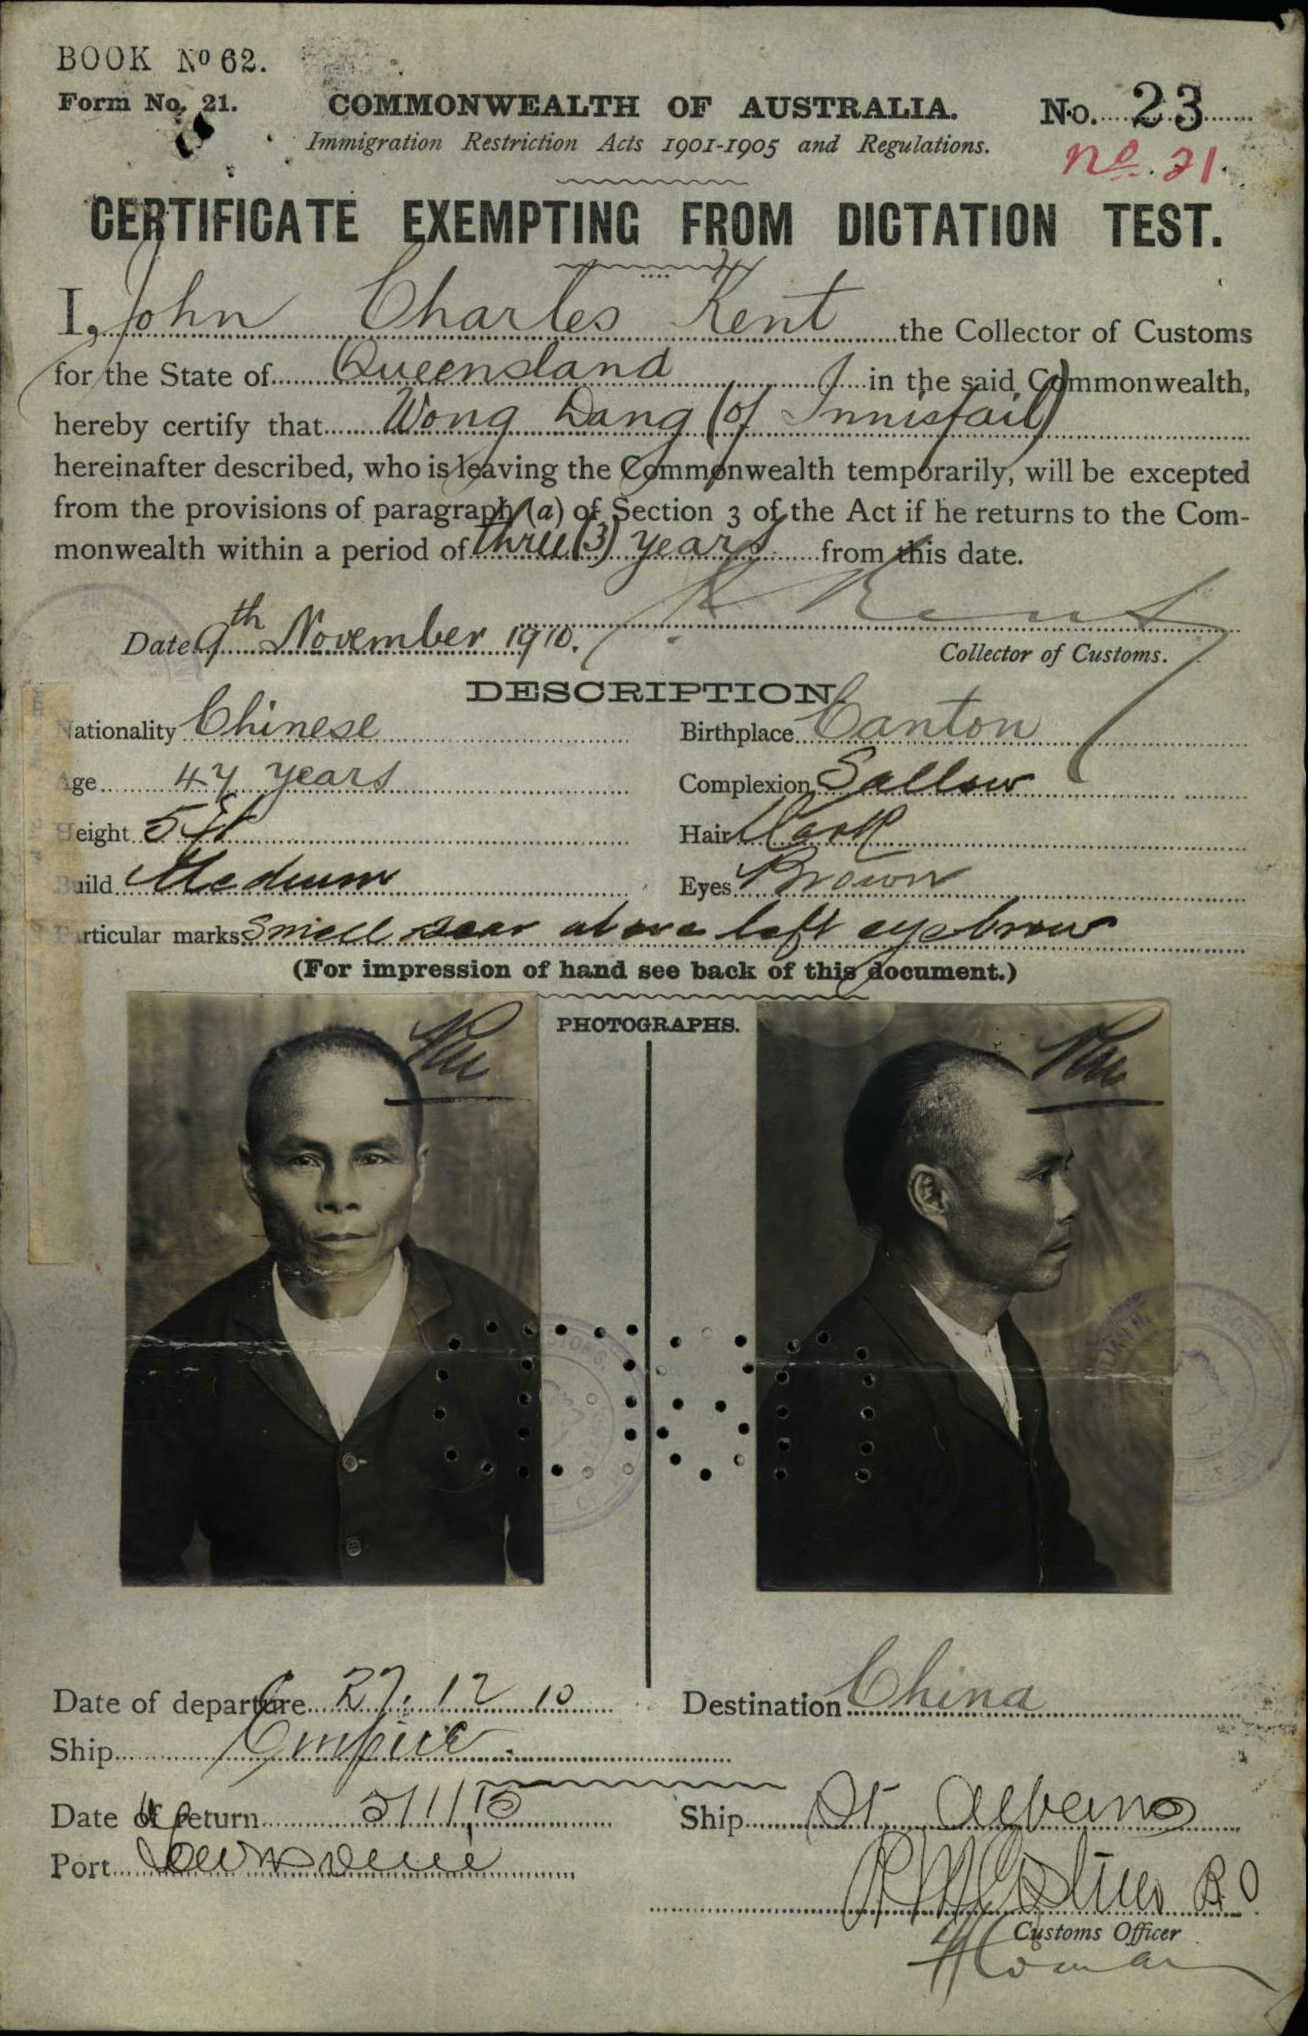 BOOK No 62.
Form No. 21.
COMMONWEALTH OF AUSTRALIA.
No. 23
Immigration Restriction Acts 1901-1905 and Regulations.
No. 21.
CERTIFICATE EXEMPTING FROM DICTATION TEST.
I, John Charles Kent the Collector of Customs
for the State of Queensland in the said Commonwealth,
hereby certify that Wong Dang (of Innisfail)
hereinafter described, who is leaving the Commonwealth temporarily, will be excepted
from the provisions of paragraph (a) of Section 3 of the Act if he returns to the Com-
monwealth within a period of three (3) years from this date.
Date 9th November 1910.
Kent
Collector of Customs.
DESCRIPTION.
Nationality Chinese
Birthplace Canton
Age 47 years
Complexion Sallow
Height 5 ft
Hair Dark
Build Medium
Eyes Brown
Particular marks Small scar above left eyebrow
(For impression of hand see back of this document.)
PHOTOGRAPHS.
Date of departure 27.12.10
Destination China
Ship Empire
Date of return
Ship St Albans
Port Townsville
Customs Officer